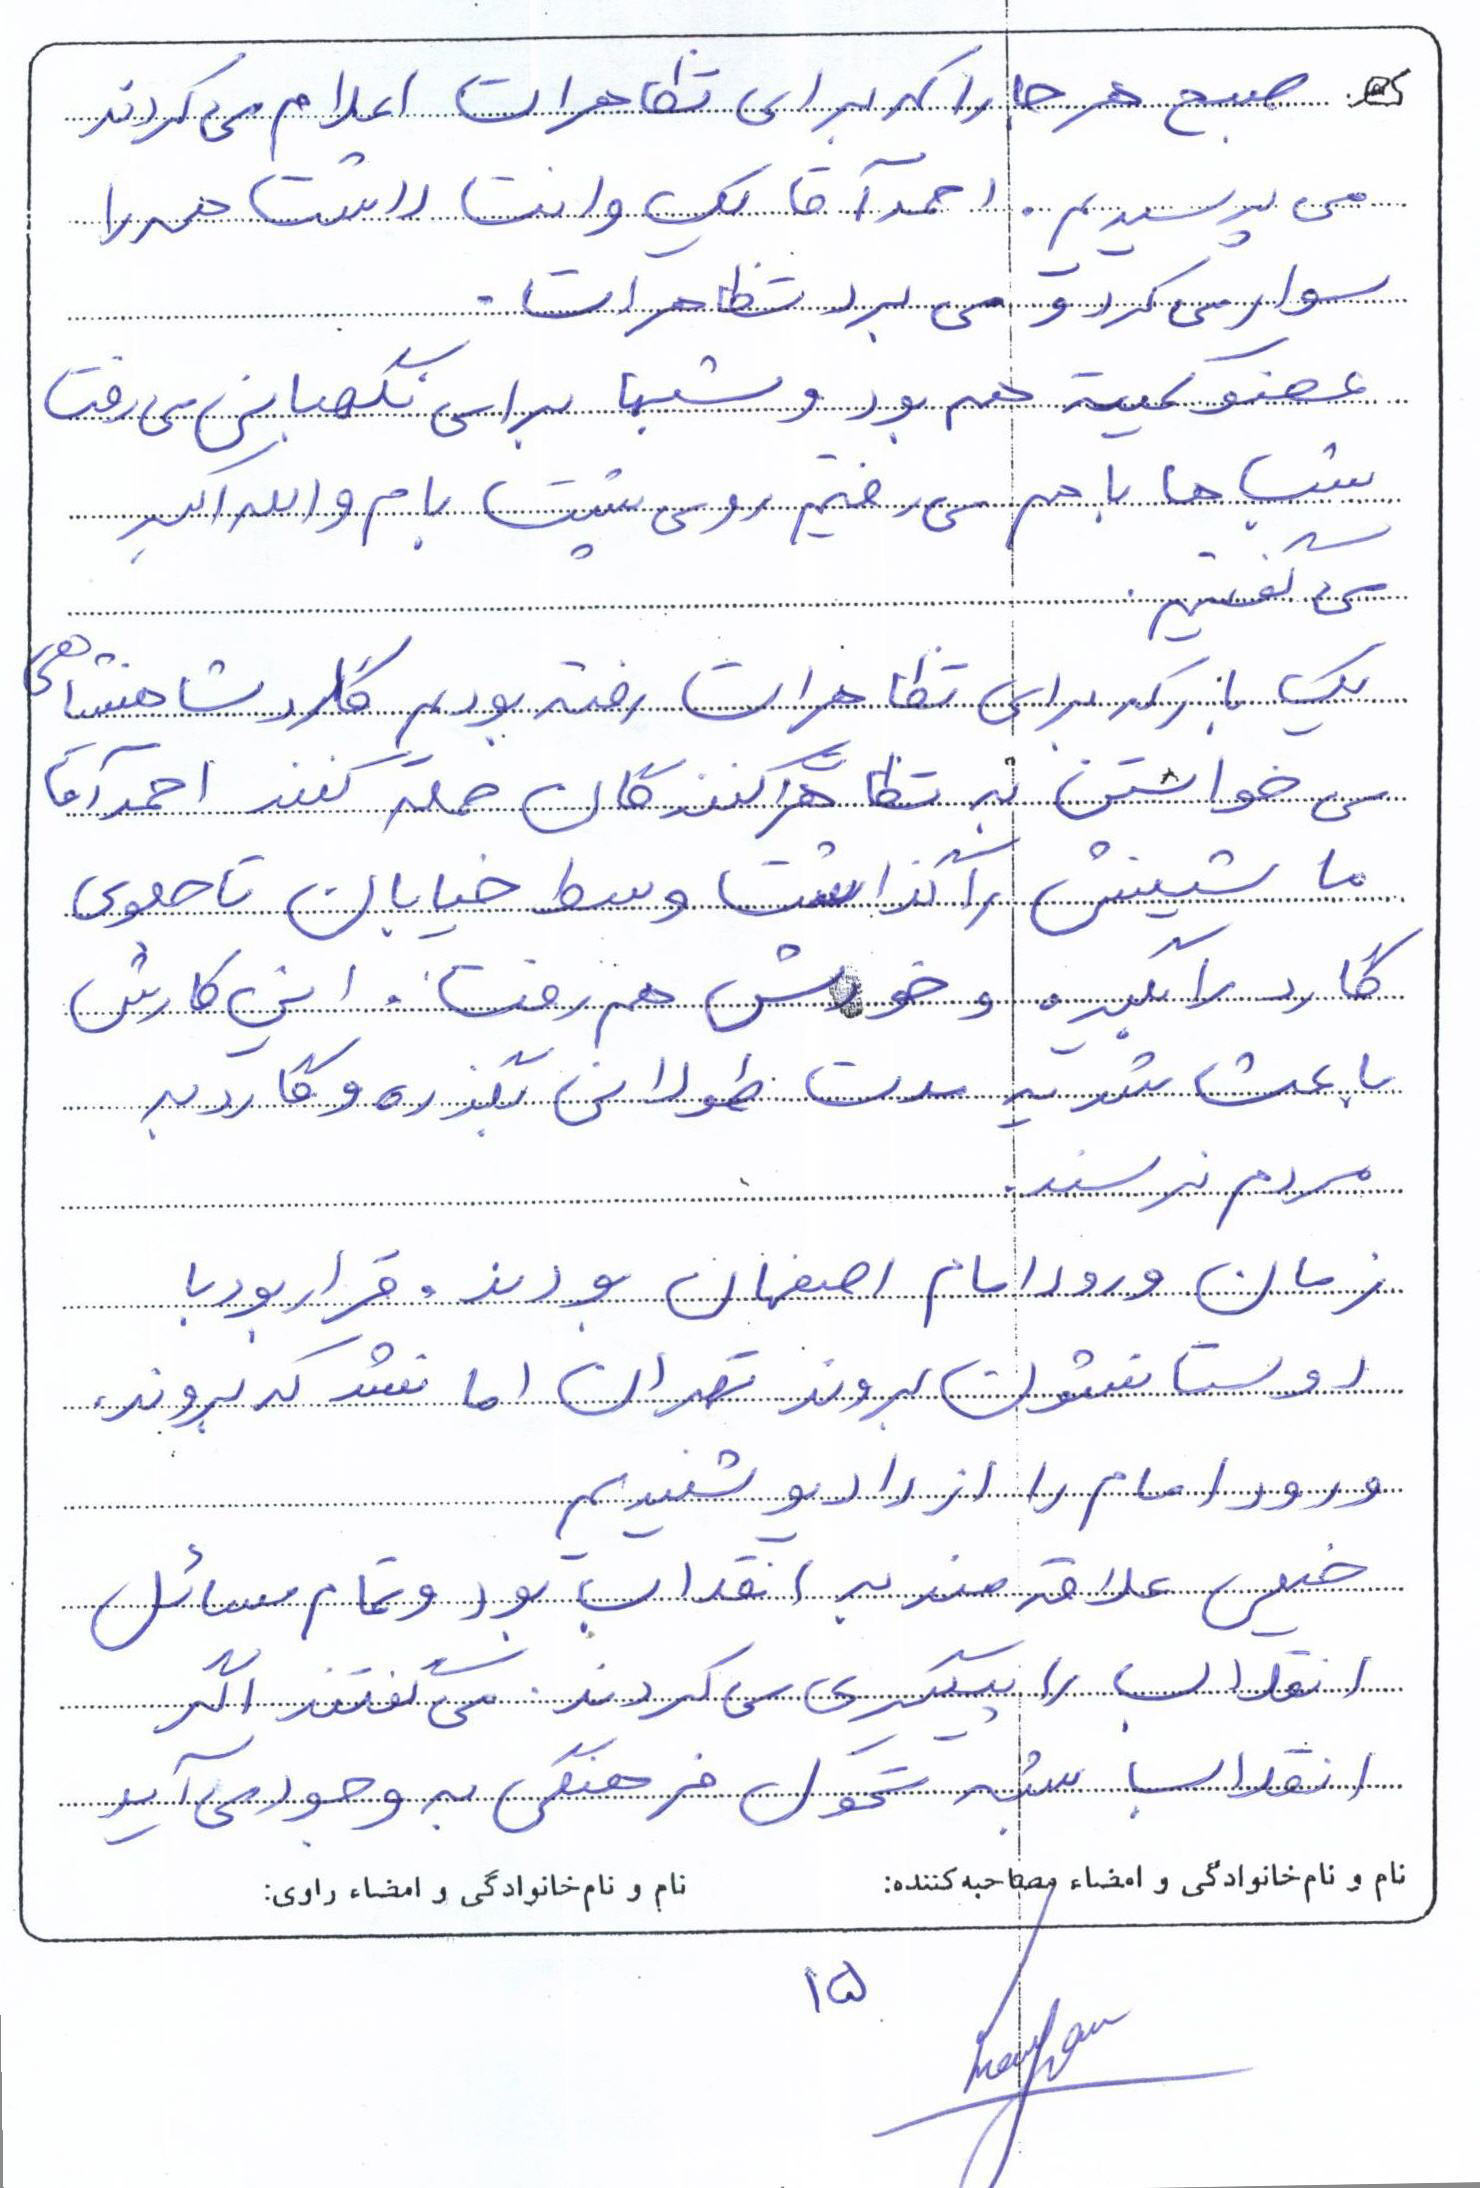 صبح هر جا را که برای تظاهرات اعلام می کردند
می پرسیدیم. احمد آقا یک وانت داشت همه را
سوار می کرد و می برد تظاهرات.
عضو کمیته هم بود و شبها برای نگهبانی می رفت
شب ها با هم می رفتیم روی پشت بام و الله اکبر
می گفتیم.
یک بار که برای تظاهرات رفته بودیم گارد شاهنشاهی
می خواستن به تظاهر کنندگان حمله کنند احمد آقا
ماشینش را گذاشت وسط خیابان تا جلوی
گارد را بگیره و خودش هم رفت. این کارش
باعث شد یه مدت طولانی بگذره و گارد به
مردم نرسند.
زمان ورود امام اصفهان بودند. قرار بود با
دوستانشون بروند تهران اما نشد که بروند،
ورود امام را از رادیو شنیدیم
خیلی علاقه مند به انقلاب بود و تمام مسائل
انقلاب را پیگیری می کردند. می گفتند اگر
انقلاب بشه تحول فرهنگی به وجود می آید
نام و نام خانوادگی و امضاء مصاحبه کننده: نام و نام خانوادگی و امضاء راوی:
۱۵